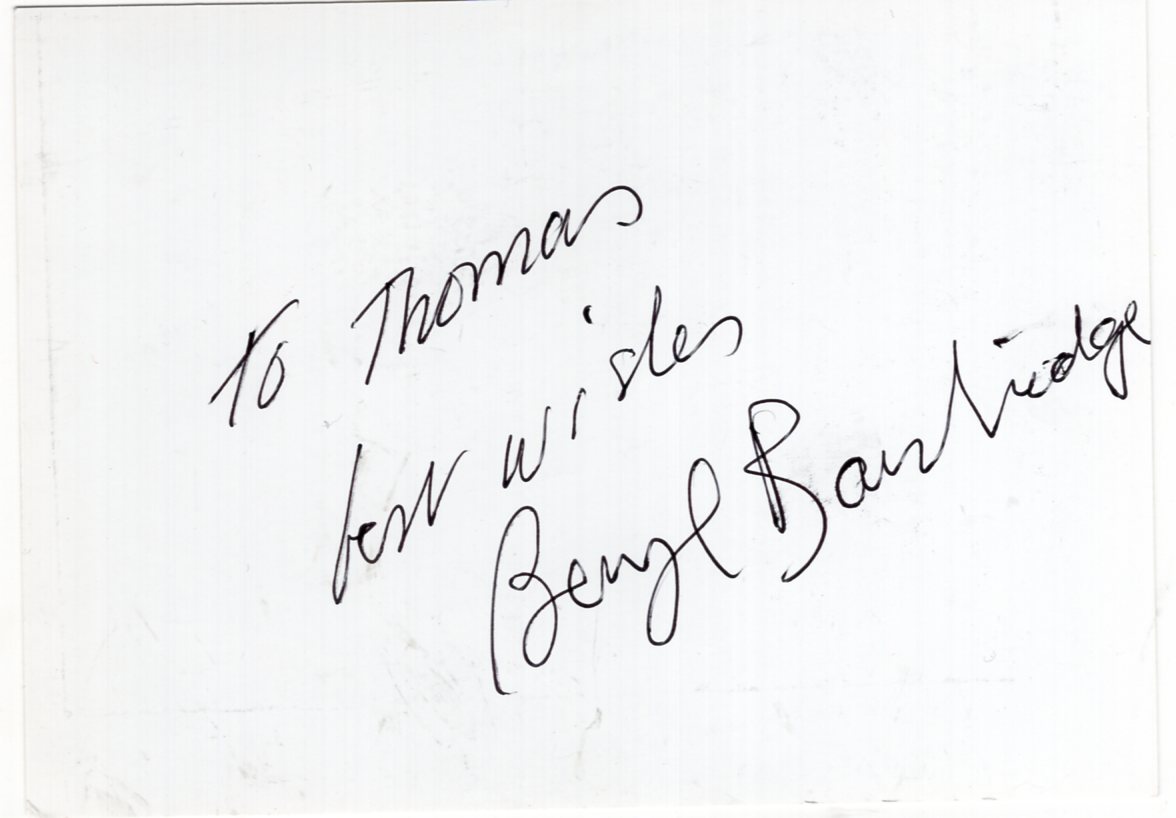 To Thomas
best wishes
Beryl Bainbridge